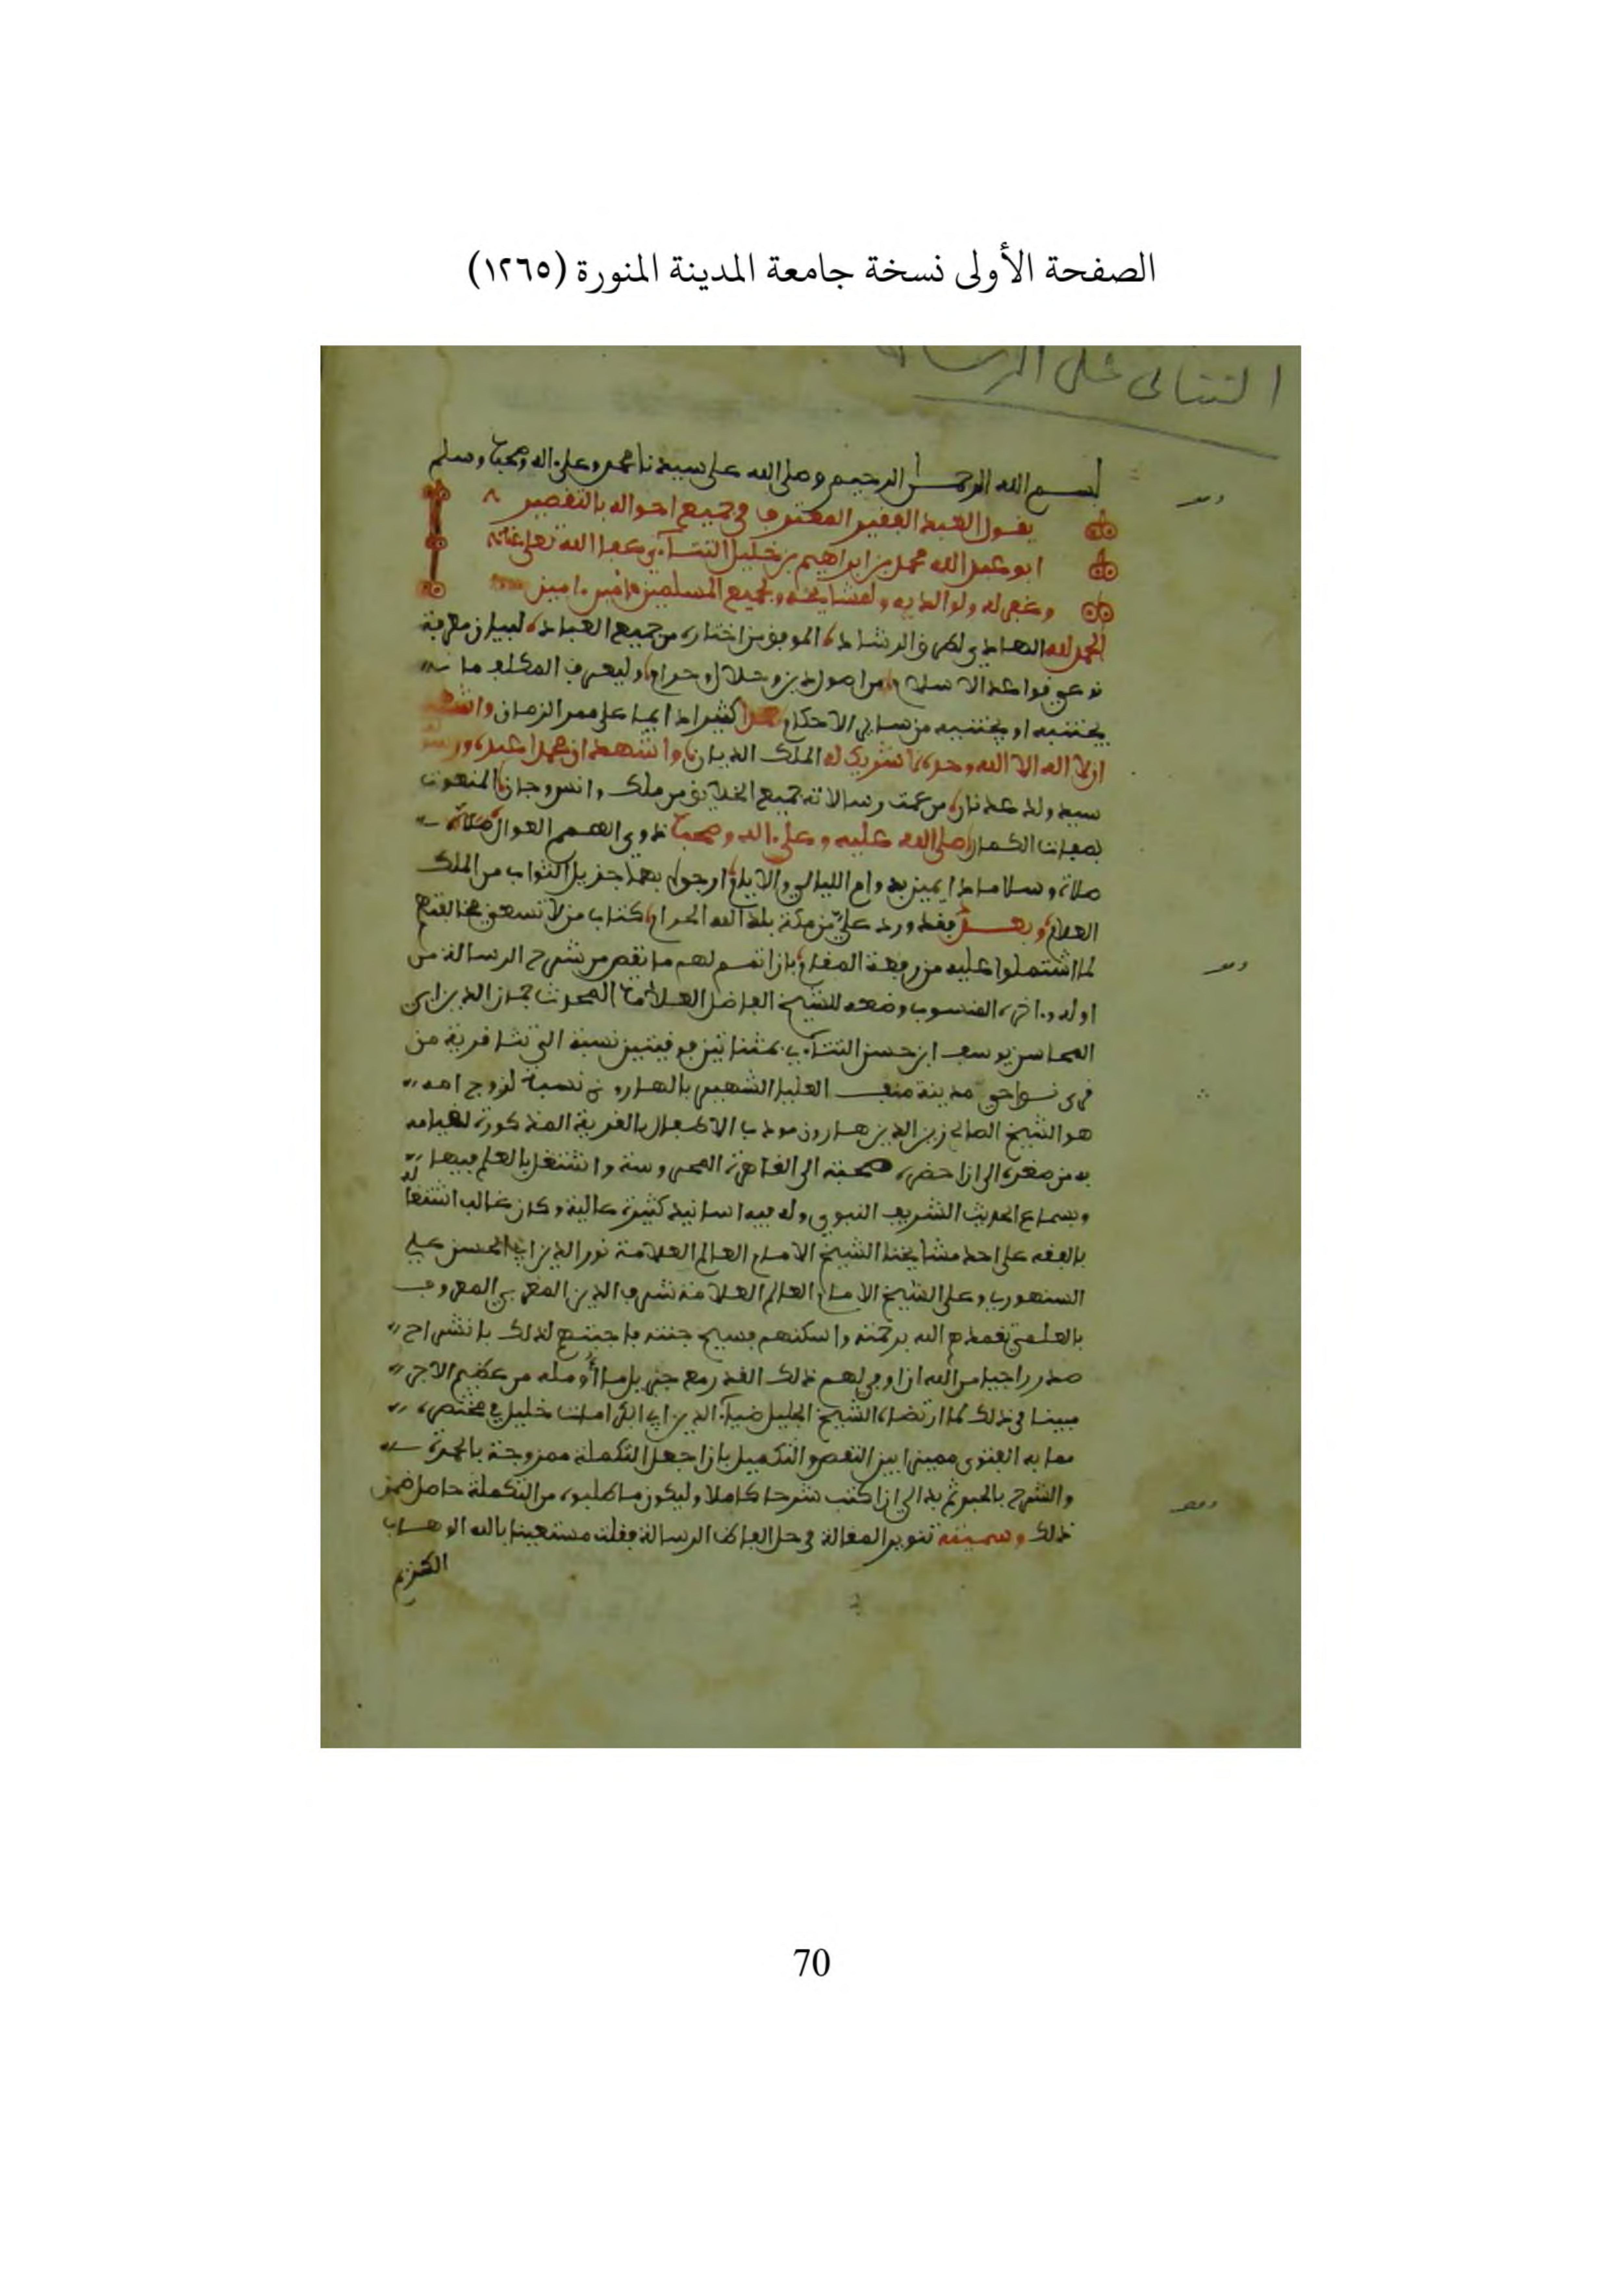 الصفحة الأولى نسخة جامعة المدينة المنورة (١٢٦٥)
التتائى على الرسالة
بسم الله الرحمن الرحيم وصلى الله على سيدنا محمد وعلى ءاله وصحبه وسلم
يقول العبد الفقير المعترف في جميع احواله بالتقصير
ابو عبد الله محمد بن ابراهيم بن خليل التتاءي عفا الله تعلى عنه
وغفر له ولوالديه ولمشايخه ولجميع المسلمين ءامين ءامين
الحمد لله الهادي لطرق الرشاد، الموفق من اختاره من جميع العباد، لبيان معرفة
نوعي قواعد الاسلام، من اصول دين وحلال وحرام، وليعرف المكلف ما
يجتنبه او يجتنيه من ساير الاحكام كثيرا دايما على ممر الزمان واشهد
ان لا اله الا الله وحده لا شريك له الملك الديان، واشهد ان محمدا عبده ورسوله
سيد ولد عدنان، من عمت رسالاته جميع الخلايق من ملك وانس وجان، المنعوت
بصفات الكمال صلى الله عليه وعلى ءاله وصحبه ذوي الهمم العوال
صلاة وسلاما دايمين بدوام الليالي والايام، ارجوا بهما جزيل الثواب من الملك
العلام، وبعد فقد ورد علي من مكة بلد الله الحرام، كتاب من لا تسعني مخالفتهم
لما اشتملوا عليه من رفعة المقام، بان اتمم لهم ما نقص من شرح الرسالة من
اوله وءاخره المنسوب وضعه للشيخ الفاضل العلامة المحدث جمال الدين ابي
المحاسن يوسف ابن حسن التتاءي بمثناتين فوقيتين نسبة الى تتا قرية من
قرى نواحي مدينة منف العليا الشهير بالهاروني نسبة لزوج امه
هو الشيخ الصالح زين الدين هارون مودب الاطفال بالقرية المذكورة لقيامه
به من صغره الى ان حضر صحبته الى القاهرة المحروسة واشتغل بالعلم فيها
وبسماع الحديث الشريف النبوي وله فيه اسانيد كثيرة عالية وكان غالب اشتغاله
بالفقه على احد مشايخنا الشيخ الامام العالم العلامة نور الدين ابي الحسن علي
السنهوري وعلى الشيخ الامام العالم العلامة شرف الدين المغربي المعروف
بالعلمي تغمدهم الله برحمته واسكنهم فسيح جنته فاجبتهم لذلك بانشراح
صدر راجيا من الله ان اوفي لهم ذلك القدر مع جزيل ما أومله من عظيم الاجر
مبينا في ذلك لما ارتضاه الشيخ الجليل ضياء الدين ابي خليل في مختصره
مما به الفتوى مميزا بين النقص والتكميل بان اجعل التكملة ممزوجة بالحمرة
والشرح بالحبر ثم بدا لي ان اكتب شرحا كاملا وليكون ما طلبوه من التكملة حاصل ضمن
ذلك وسميته تنوير المقالة في حل الفاظ الرسالة فقلت مستعينا بالله الوهاب
الكريم
70